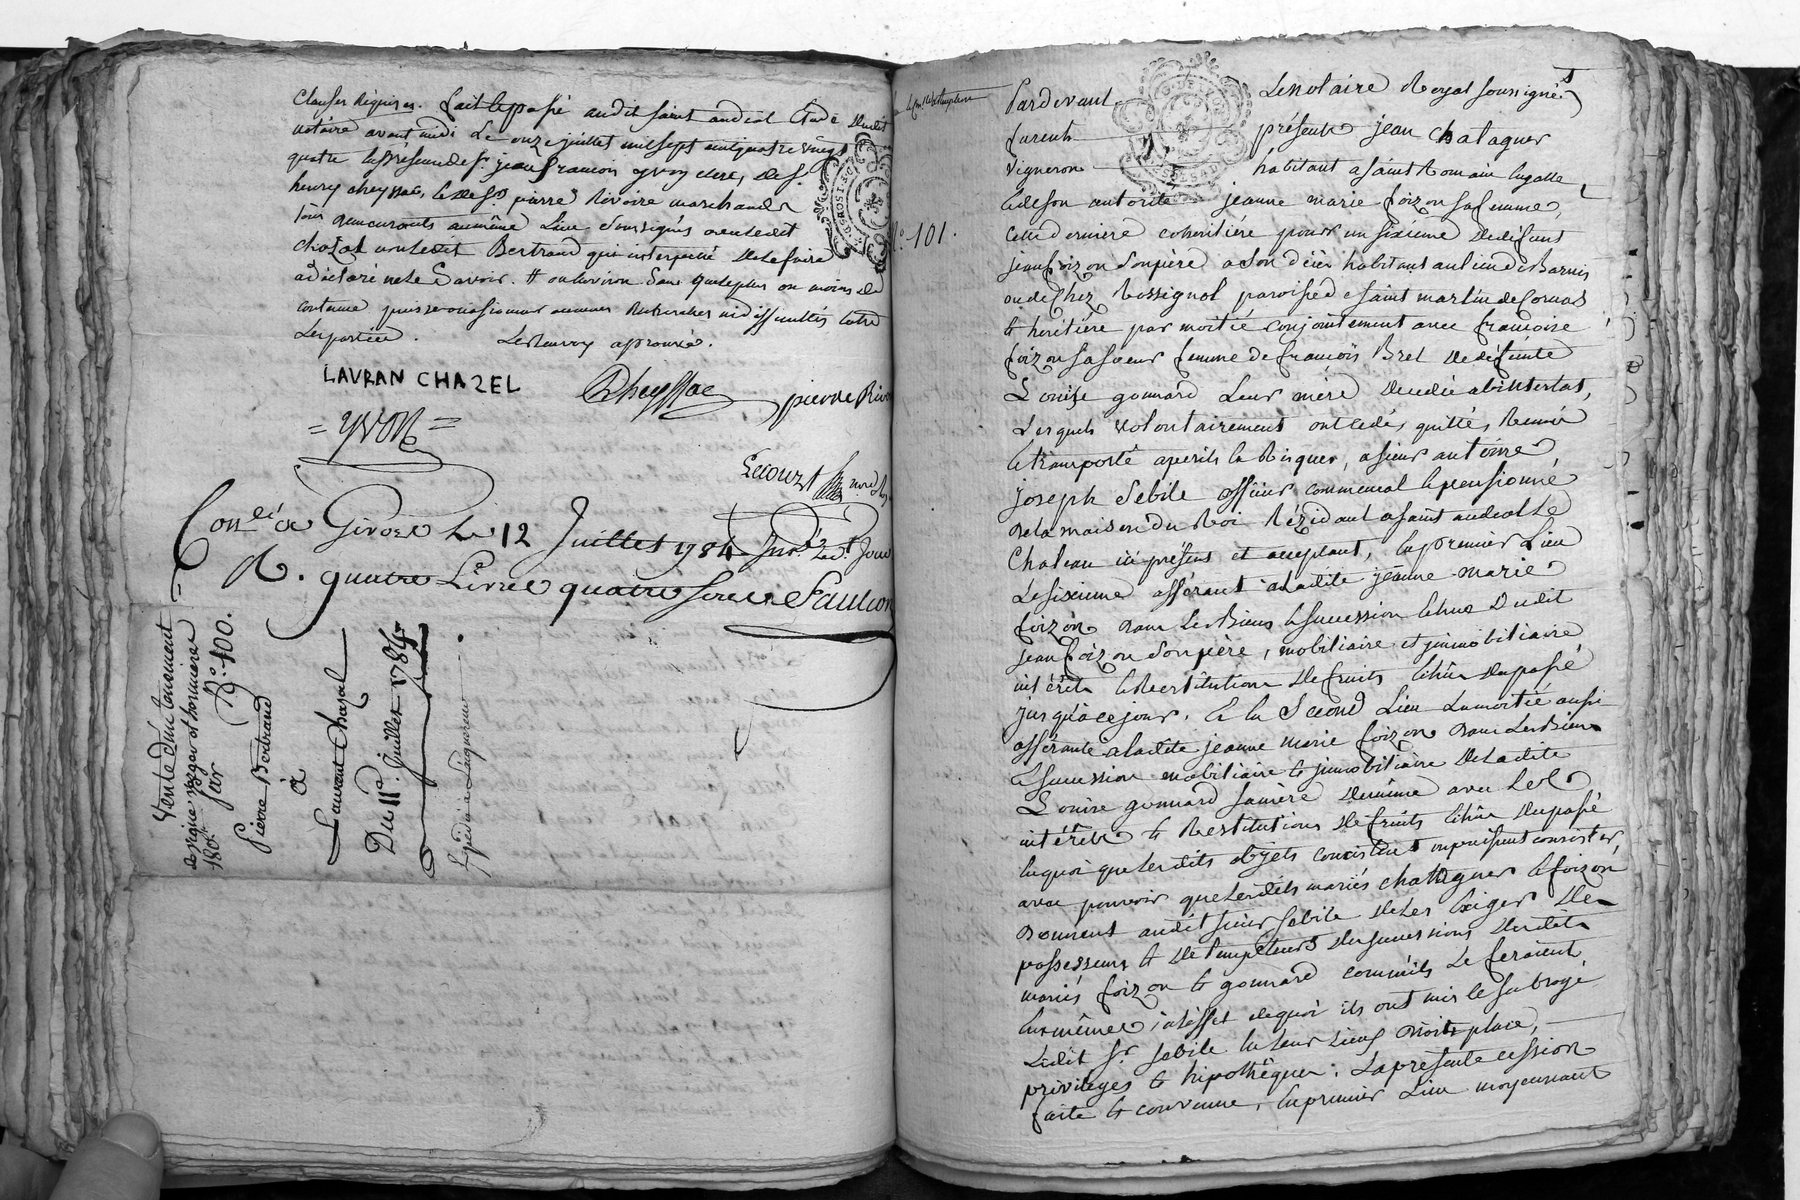 Clauses Requises. fait & passé audit saint andéol Etude dudit
notaire avant midi Le onze juillet mil sept cent quatre vingt
quatre En présence de Sr jean françois yvon clerc, de Sr
henry cheyssac, & de Sr pierre Rivoire marchand
tous demeurants au même Lieu Soussignés avec ledit
Chazal non ledit Bertrand qui interpellé de le faire
a déclaré ne le Savoir. # ou Environ Sans que le plus ou moins de
contenue puisse occasionner aucunes Recherches ni difficultés Entre
Les parties. Le Renvoy aprouvé.
LAVRAN CHAZEL
Cheyssac
pierre Rivo
= YVON =
Lecourt
Con.lé a Givors Le 12 Juillet 1784
R. quatre Livres quatre sous Faulcon
Vente d'un tenement
de vigne verger et hermiere
180lt par N.° 100.
Pierre Bertrand
à
Laurant Chazal
Du 11e. Juillet 1784
Expédié a L'acquereur
N.° 101.
Pardevant Le Notaire Royal soussigné
furent présents jean chatagner
vigneron habitant a saint Romain En galle
& de son autorité jeanne marie foizon sa femme,
cette derniere coheritiére pour un sixieme de défunt
jean foizon Son pére a Son décès habitant au lieu de Barnis
ou de chez Rossignol paroisse de saint martin de Cornas
& heritiére par moitié conjointement avec françoise
foizon sa soeur femme de françois Bret de défunte
Louise gonnard Leur mére décédée abintestat,
Lesquels volontairement ont cédé, quitté, Remis
& transporté a perils & Risques, a sieur antoine
joseph Sebile officier commensal & pensionné
de la maison du Roi Rézidant a saint andéol Le
Chateau ici présent et acceptant, En premier Lieu
Le sixieme afférant a ladite jeanne marie
foizon dans Les Biens & succession Echus dudit
jean foizon Son pére, mobiliaire et immobiliaire
intérêts & Restitution de fruits Echus du passé
jusqu'à ce jour. Et En Second Lieu La moitié aussi
afférante a ladite jeanne marie foizon dans Les Biens
& succession mobiliaire & immobiliaire de ladite
Louise gonnard sa mére de même avec Les
intérêts & Restitutions de fruits Echus du passé
En quoi que Lesdits objets consistent ou puissent consister,
avec pouvoir que Lesdits mariés chatagner & foizon
donnent audit sieur Sebile de Les Exiger des
possesseurs & détempteurs des successions desdits
mariés foizon & gonnard comme ils Le feraient
Eux mêmes, a l'effet de quoi ils ont mis & subrogé
Ledit Sr Sebile En Leur Lieu, droit, place,
privileges & hipothêques; La présente cession
faite & convenue, En premier Lieu moyennant